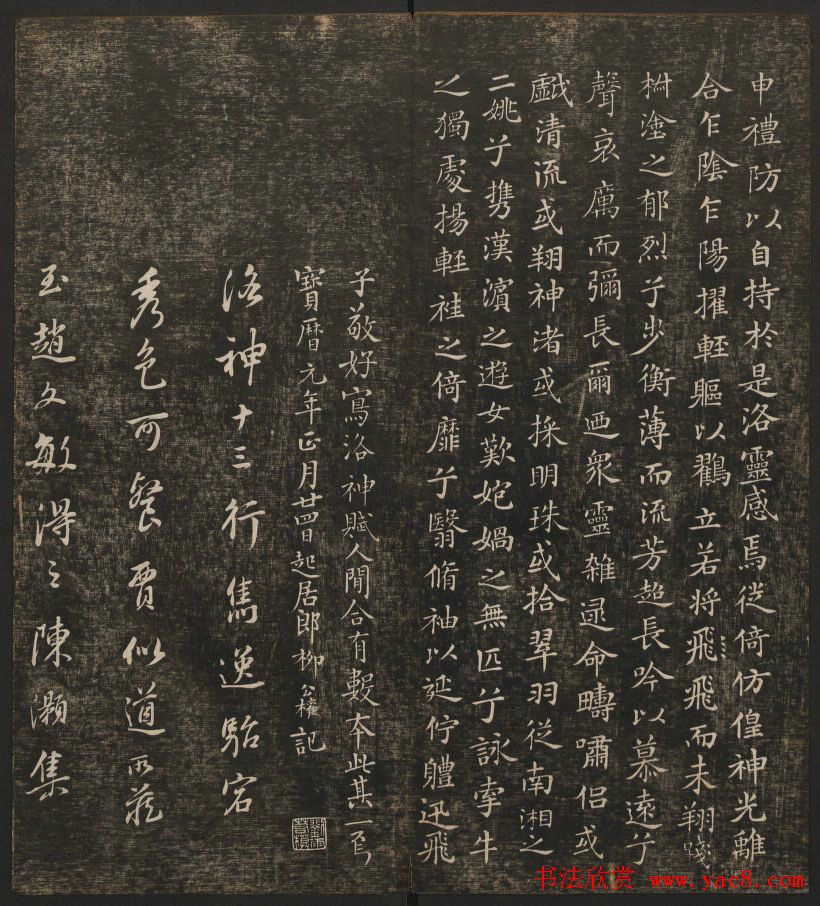 申禮防以自持於是洛靈感焉從倚仿偟神光離
合乍陰乍陽擢輕軀以鸖立若將飛飛而未翔踐
椒塗之郁烈兮步衡薄而流芳超長吟以慕遠兮
聲哀厲而彌長爾迺衆靈雜遝命疇嘯侶或
戲清流或翔神渚或採明珠或拾翠羽從南湘之
二姚兮攜漢濱之遊女歎匏媧之無匹兮詠牽牛
之獨處揚輕袿之倚靡兮翳脩袖以延佇體迅飛
子敬好寫洛神賦人間合有數本此其一焉
寶曆元年正月廿四日起居郎柳公權記
洛神十三行雋逸駘宕
秀色可餐賈似道所藏
至趙文敏得之陳灝集
书法欣赏 www.yac8.com